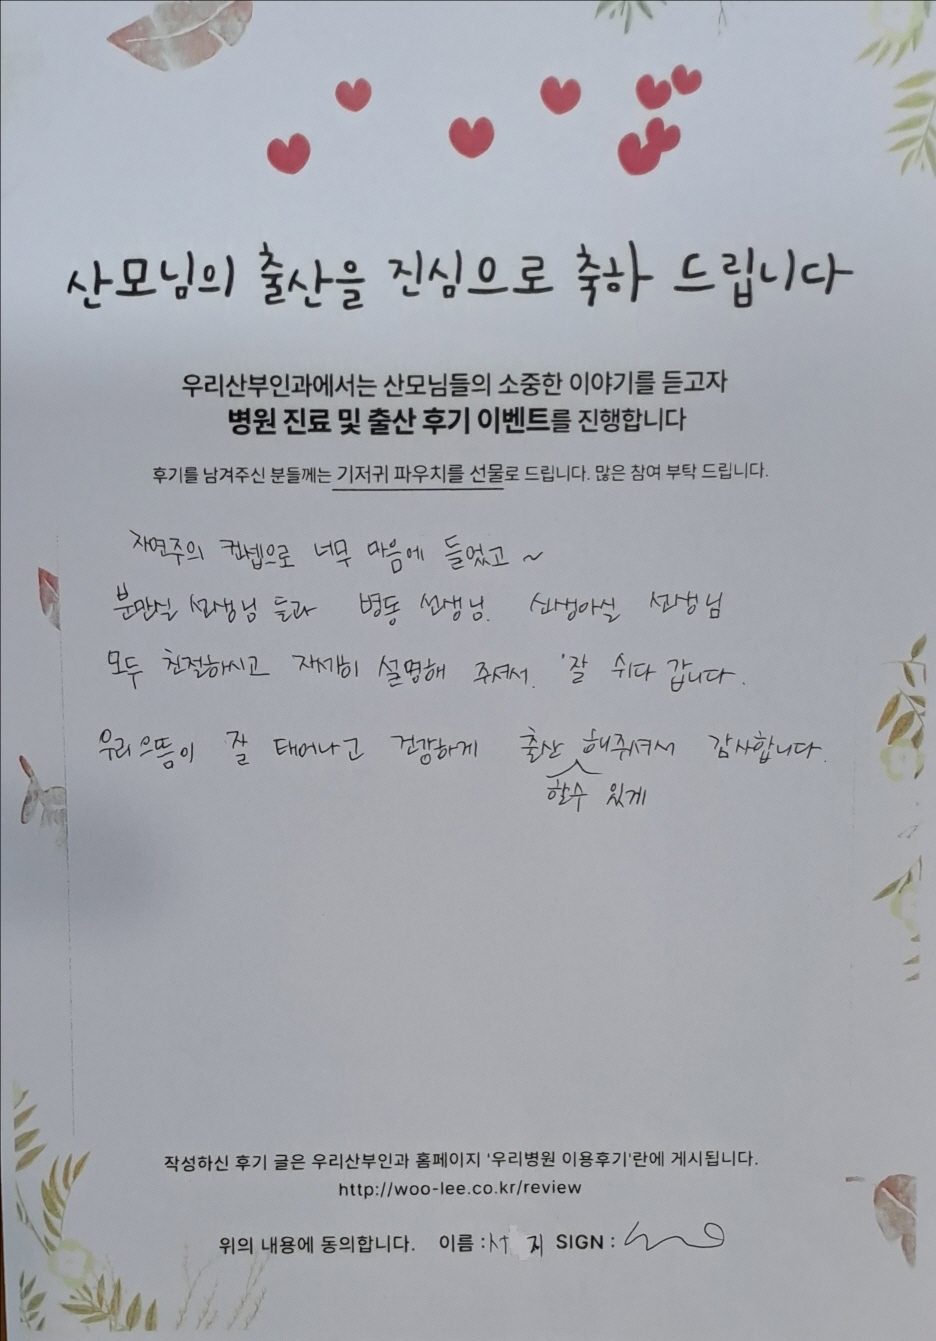 산모님의 출산을 진심으로 축하 드립니다
우리산부인과에서는 산모님들의 소중한 이야기를 듣고자
병원 진료 및 출산 후기 이벤트를 진행합니다
후기를 남겨주신 분들께는 기저귀 파우치를 선물로 드립니다. 많은 참여 부탁 드립니다.
자연주의 컨셉으로 너무 마음에 들었고 ~
분만실 선생님 들과 병동 선생님. 신생아실 선생님
모두 친절하시고 자세히 설명해 주셔서. 잘 쉬다 갑니다.
우리 으뜸이 잘 태어나고 건강하게 출산 해주셔서 감사합니다.
할수 있게
작성하신 후기 글은 우리산부인과 홈페이지 '우리병원 이용후기'란에 게시됩니다.
http://woo-lee.co.kr/review
위의 내용에 동의합니다. 이름 : 지 SIGN :